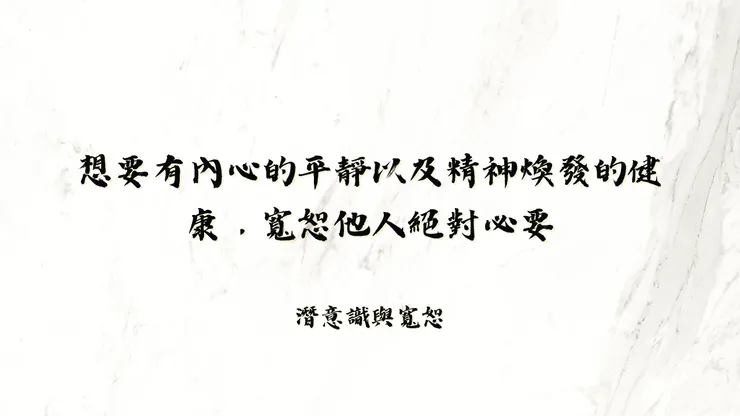 想要有內心的平靜以及精神煥發的健
康，寬恕他人絕對必要
潛意識與寬恕